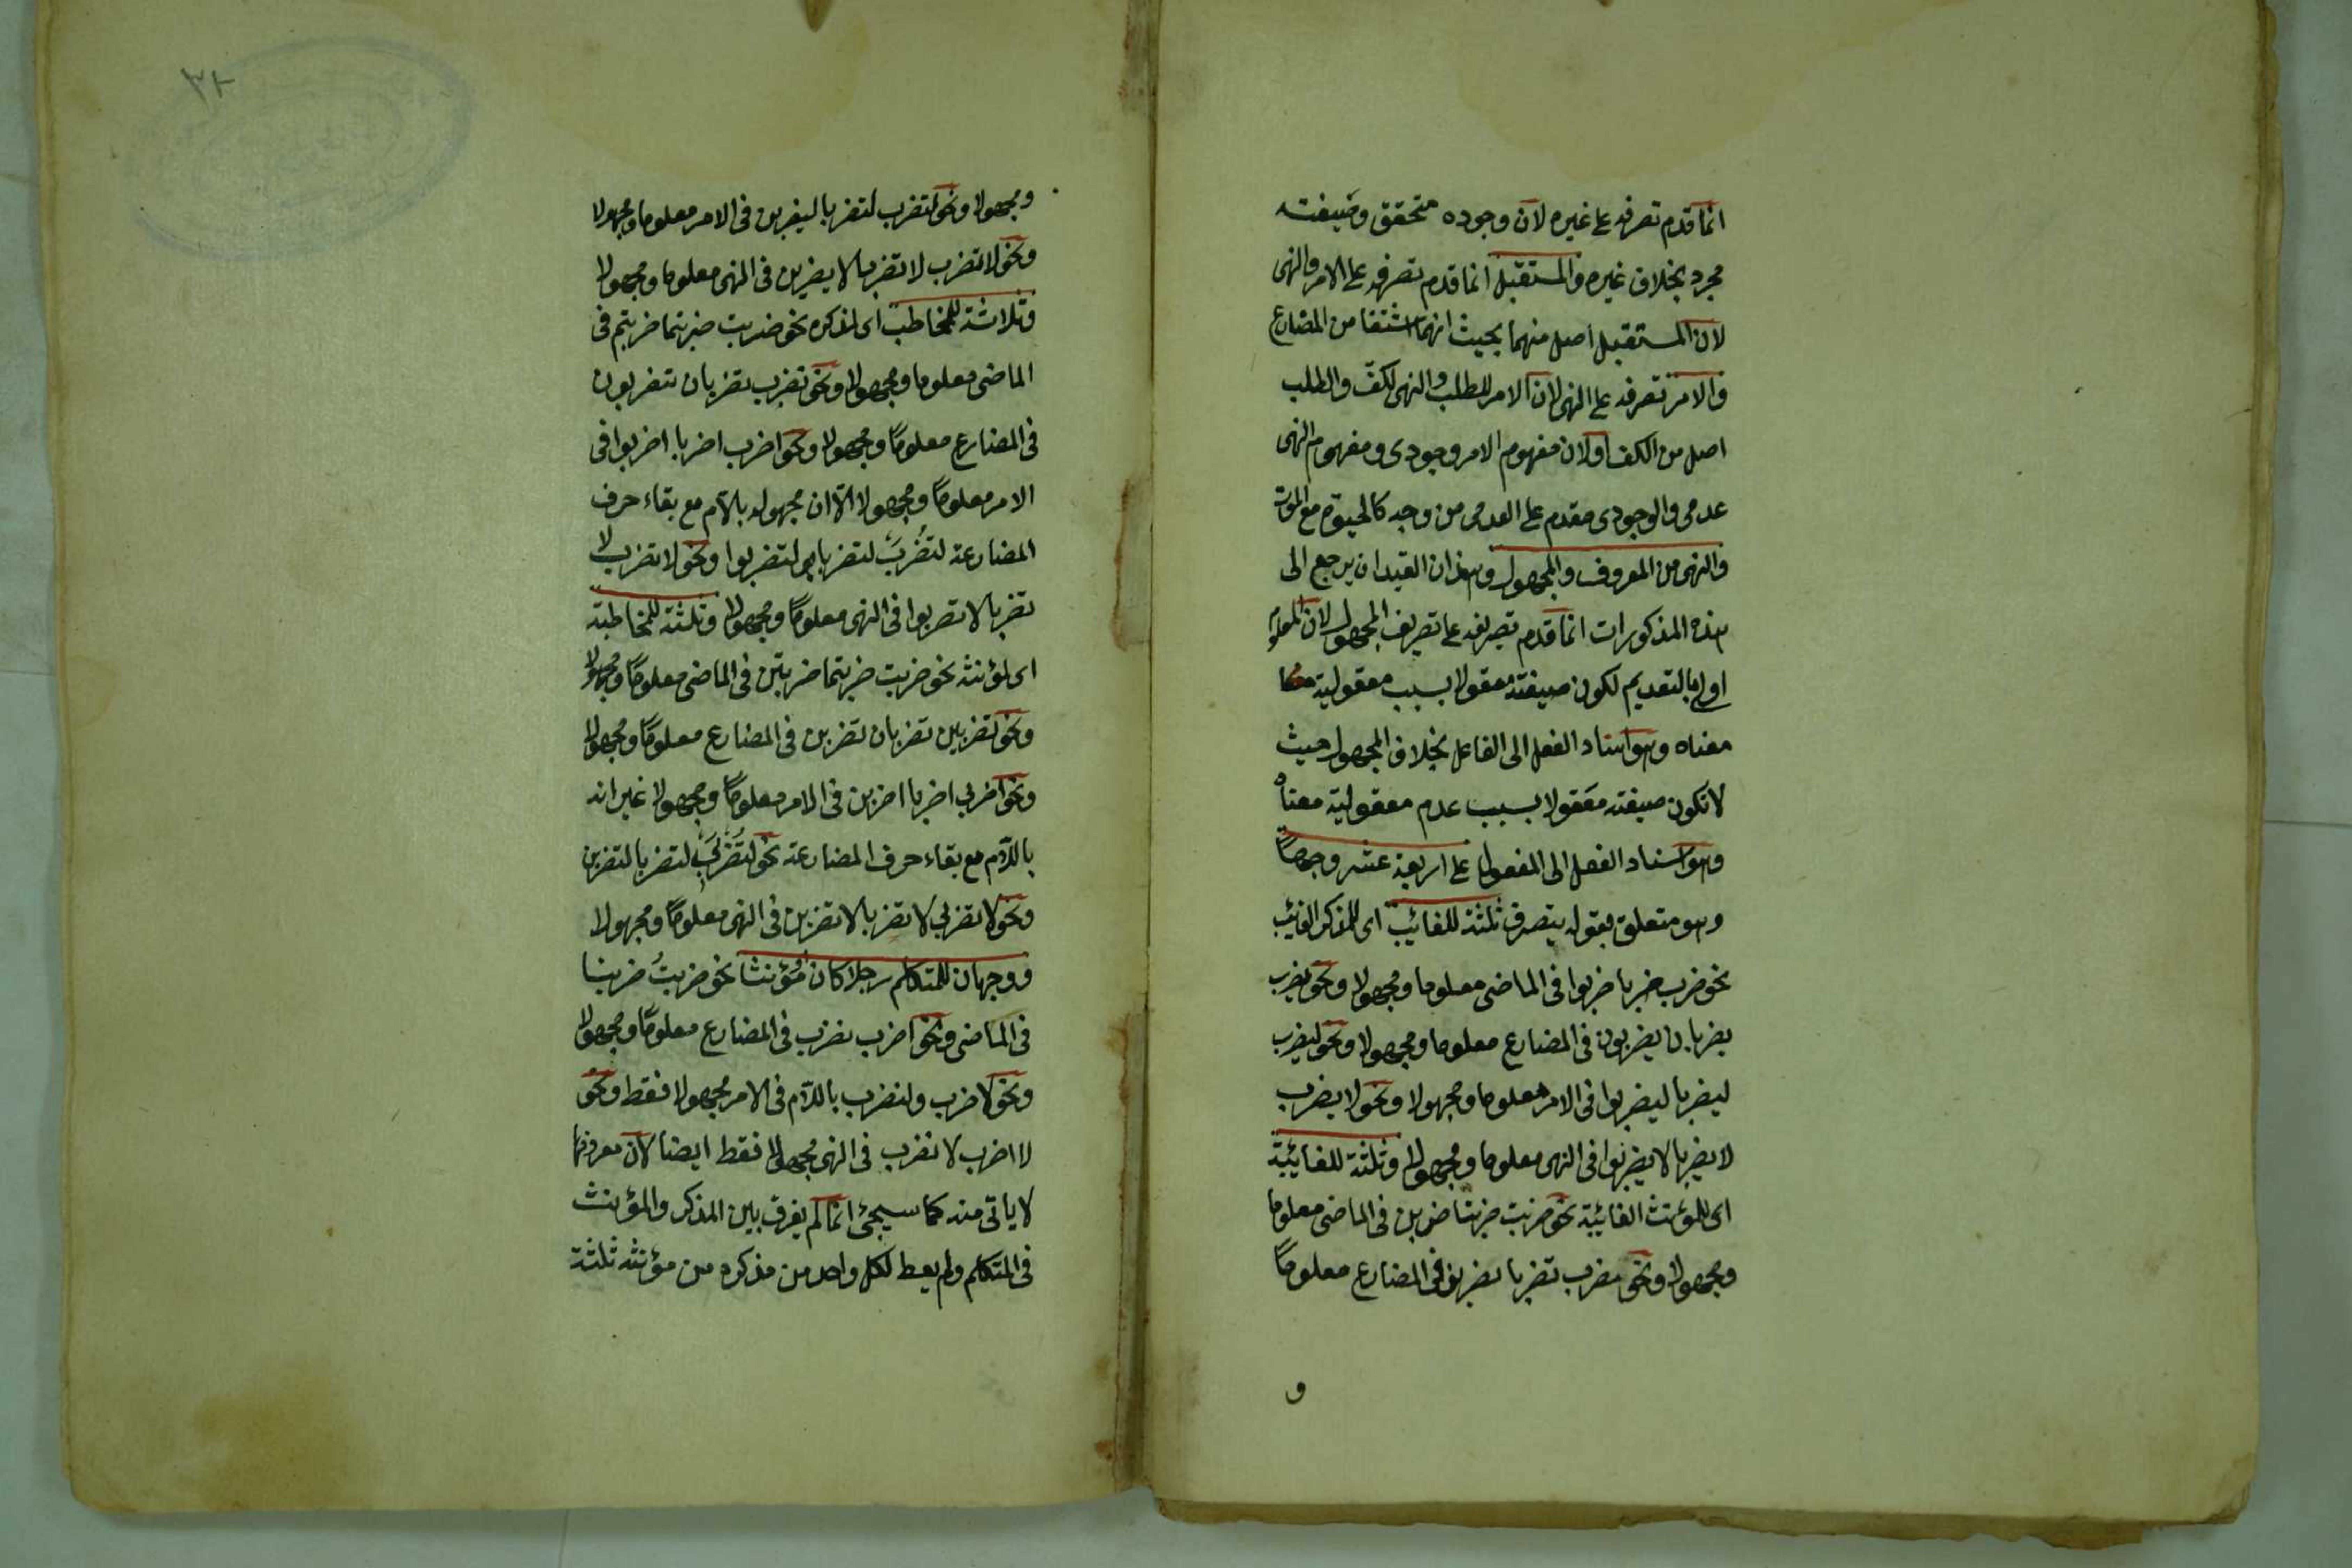 انما قدم تصرفه على غيره لان وجوده متحقق وصيغته
مجرد بخلاف غيره والمستقبل انما قدم تصرفه على الامر والنهى
لان المستقبل اصل منهما بحيث انهما اشتقا من المضارع
والامر تصرفه على النهى لان الامر للطلب والنهى لكفّ والطلب
اصل من الكف اولان مفهوم الامر وجودى ومفهوم النهى
عدمى والوجودى مقدم على العدمى من وجه كالحيوة مع الموت
والنهى من المعروف والمجهول وهذان القيدان يرجع الى
هذه المذكورات انما قدم تصريفه على تصريف المجهول لان المعلوم
اولى بالتقديم لكون صيغته معقولا بسبب معقولية
معناه وهو اسناد الفعل الى الفاعل بخلاف المجهول حيث
لا تكون صيغته معقولا بسبب عدم معقولية معناه
وهو اسناد الفعل الى المفعول على اربعة عشر وجهاً
وهو متعلق بقوله يتصرف ثلثة للغائب اى للمذكر الغائب
نحو ضرب ضربا ضربوا فى الماضى معلوما ومجهولا ونحو يضرب
يضربان يضربون فى المضارع معلوما ومجهولا ونحو ليضرب
ليضربا ليضربوا فى الامر معلوما ومجهولا ونحو لا يضرب
لا يضربا لا يضربوا فى النهى معلوما ومجهولا وثلثة للغائبة
اى للمؤنث الغائبة نحو ضربت ضربتا ضربن فى الماضى معلوما
ومجهولا ونحو تضرب تضربا يضربن فى المضارع معلوماً
و
٣٢
ومجهولا ونحو لتضرب لتضربا ليضربن فى الامر معلوما ومجهولا
ونحو لا تضرب لا تضربا لا يضربن فى النهى معلوما ومجهولا
وثلاثة للمخاطب اى لمذكره نحو ضربت ضربتما ضربتم فى
الماضى معلوما ومجهولا ونحو تضرب تضربان تضربون
فى المضارع معلوماً ومجهولا ونحو اضرب اضربا اضربوا فى
الامر معلوماً ومجهولا الّا ان مجهوله بالّام مع بقاء حرف
المضارعة لتُضْرَبْ لتضربا لتضربوا ونحو لا تضرب لا
تضربا لا تضربوا فى النهى معلوماً ومجهولا وثلثة للمخاطبة
اى لمؤنثه نحو ضربت ضربتما ضربتن فى الماضى معلوماً ومجهولا
ونحو تضربين تضربان تضربن فى المضارع معلوماً ومجهولا
ونحو اضربى اضربا اضربن فى الامر معلوماً ومجهولا غير انه
باللّام مع بقاء حرف المضارعة نحو لتُضْرَبى لتضربا لتضربن
ونحو لا تضربى لا تضربا لا تضربن فى النهى معلوماً ومجهولا
ووجهان للمتكلم رجلا كان او مؤنثا نحو ضربتُ ضربنا
فى الماضى ونحو اضرب نضرب فى المضارع معلوماً ومجهولا
ونحو لاضرب ولنضرب باللّام فى الامر مجهولا فقط ونحو
لا اضرب لا نضرب فى النهى مجهولا فقط ايضا لان معروفهما
لا ياتى منه كما سيجئ انما لم يفرق بين المذكر والمؤنث
فى المتكلم ولم يعط لكل واحد من مذكره من مؤنثه ثلثة